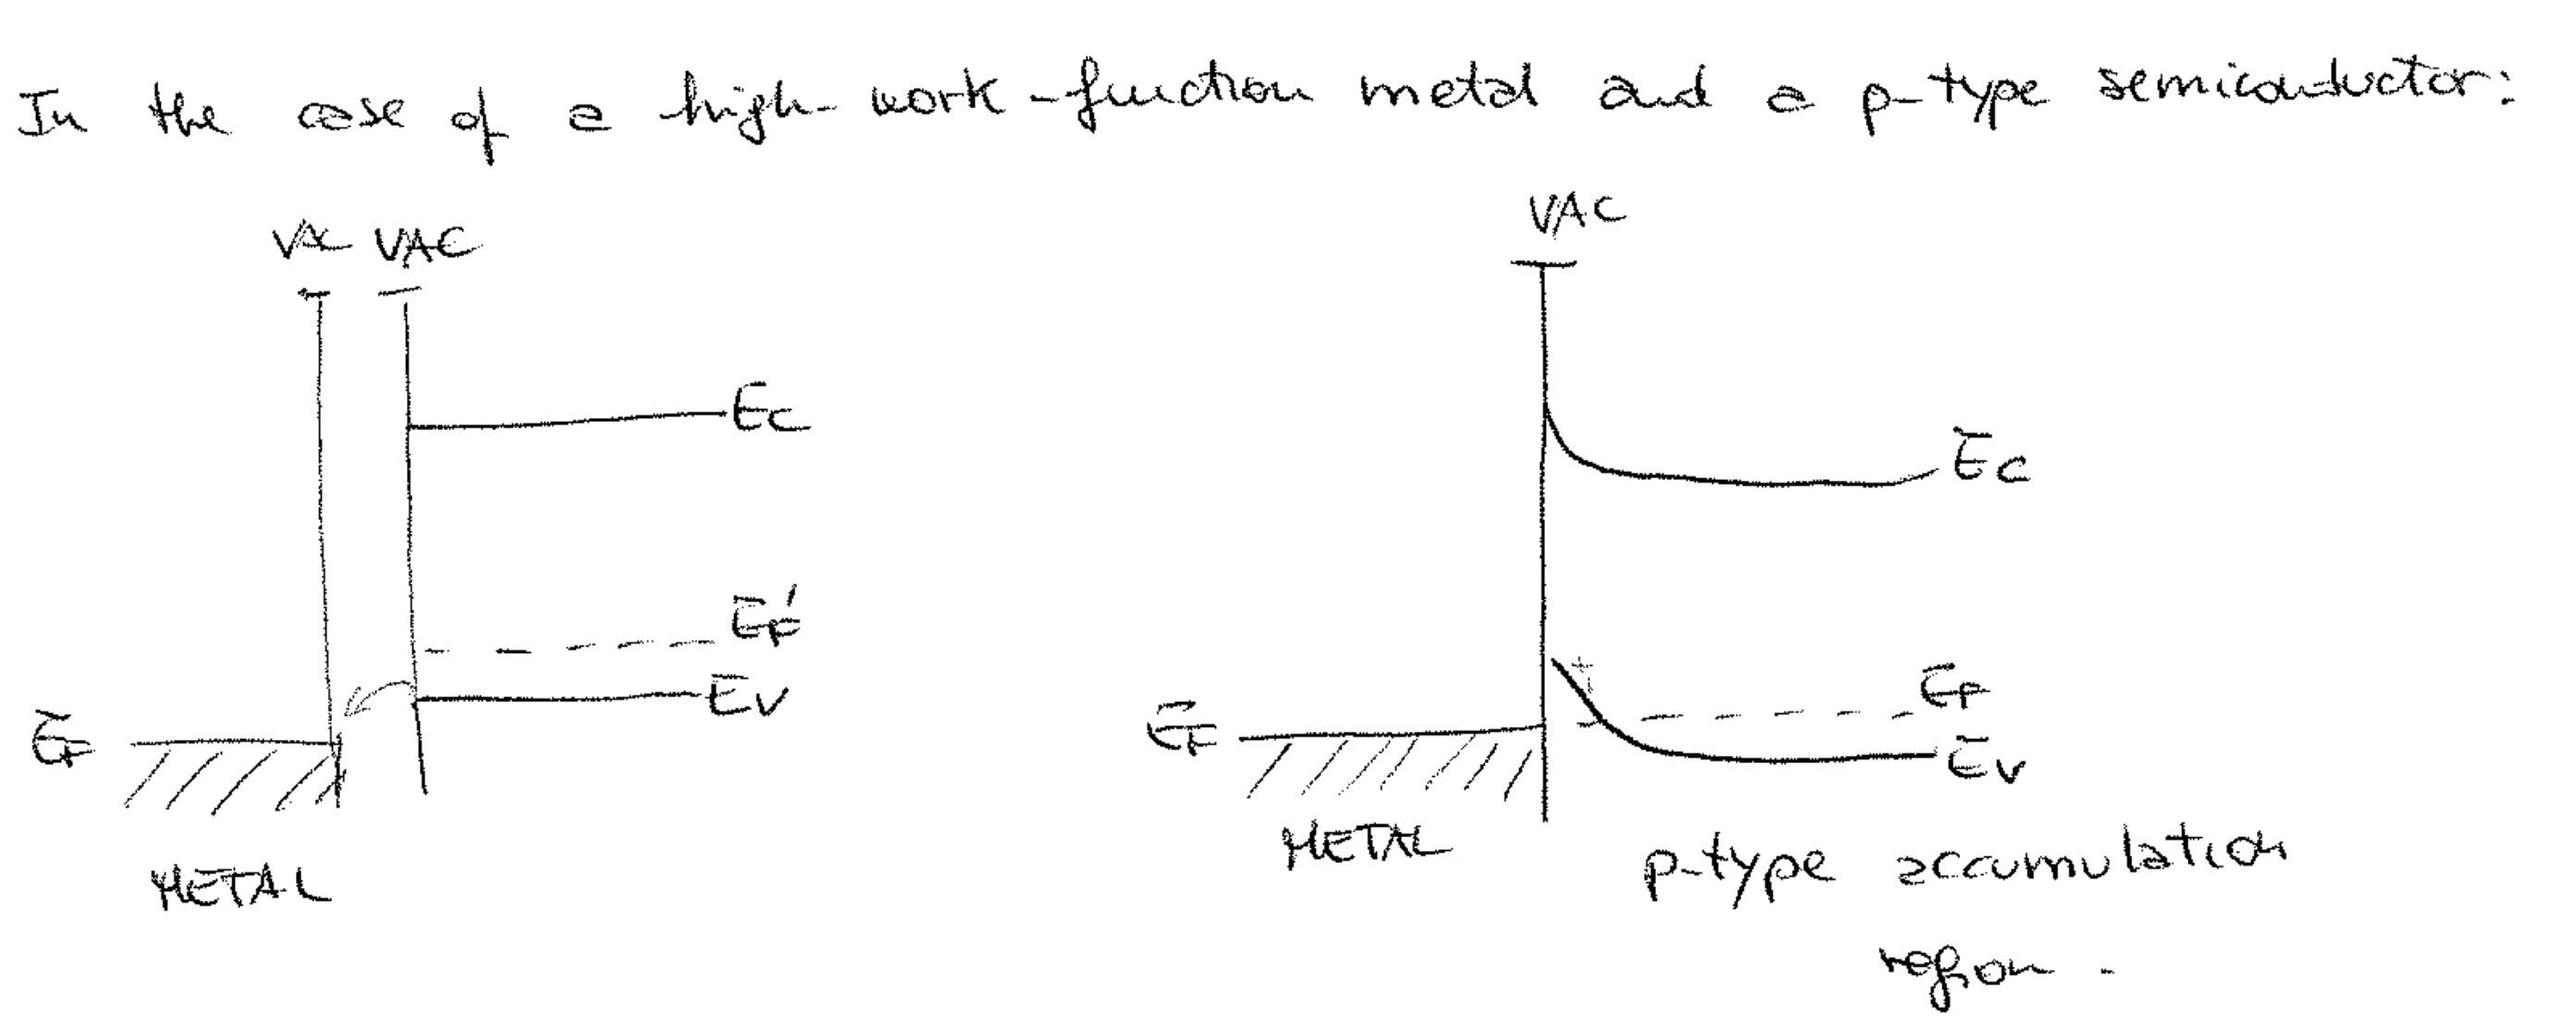 In the case of a high-work-function metal and a p-type semiconductor:
VAC VAC
VAC
EC
EC
EF'
EV
EF
EF
EF
EV
METAL
METAL
+
p-type accumulation
region.